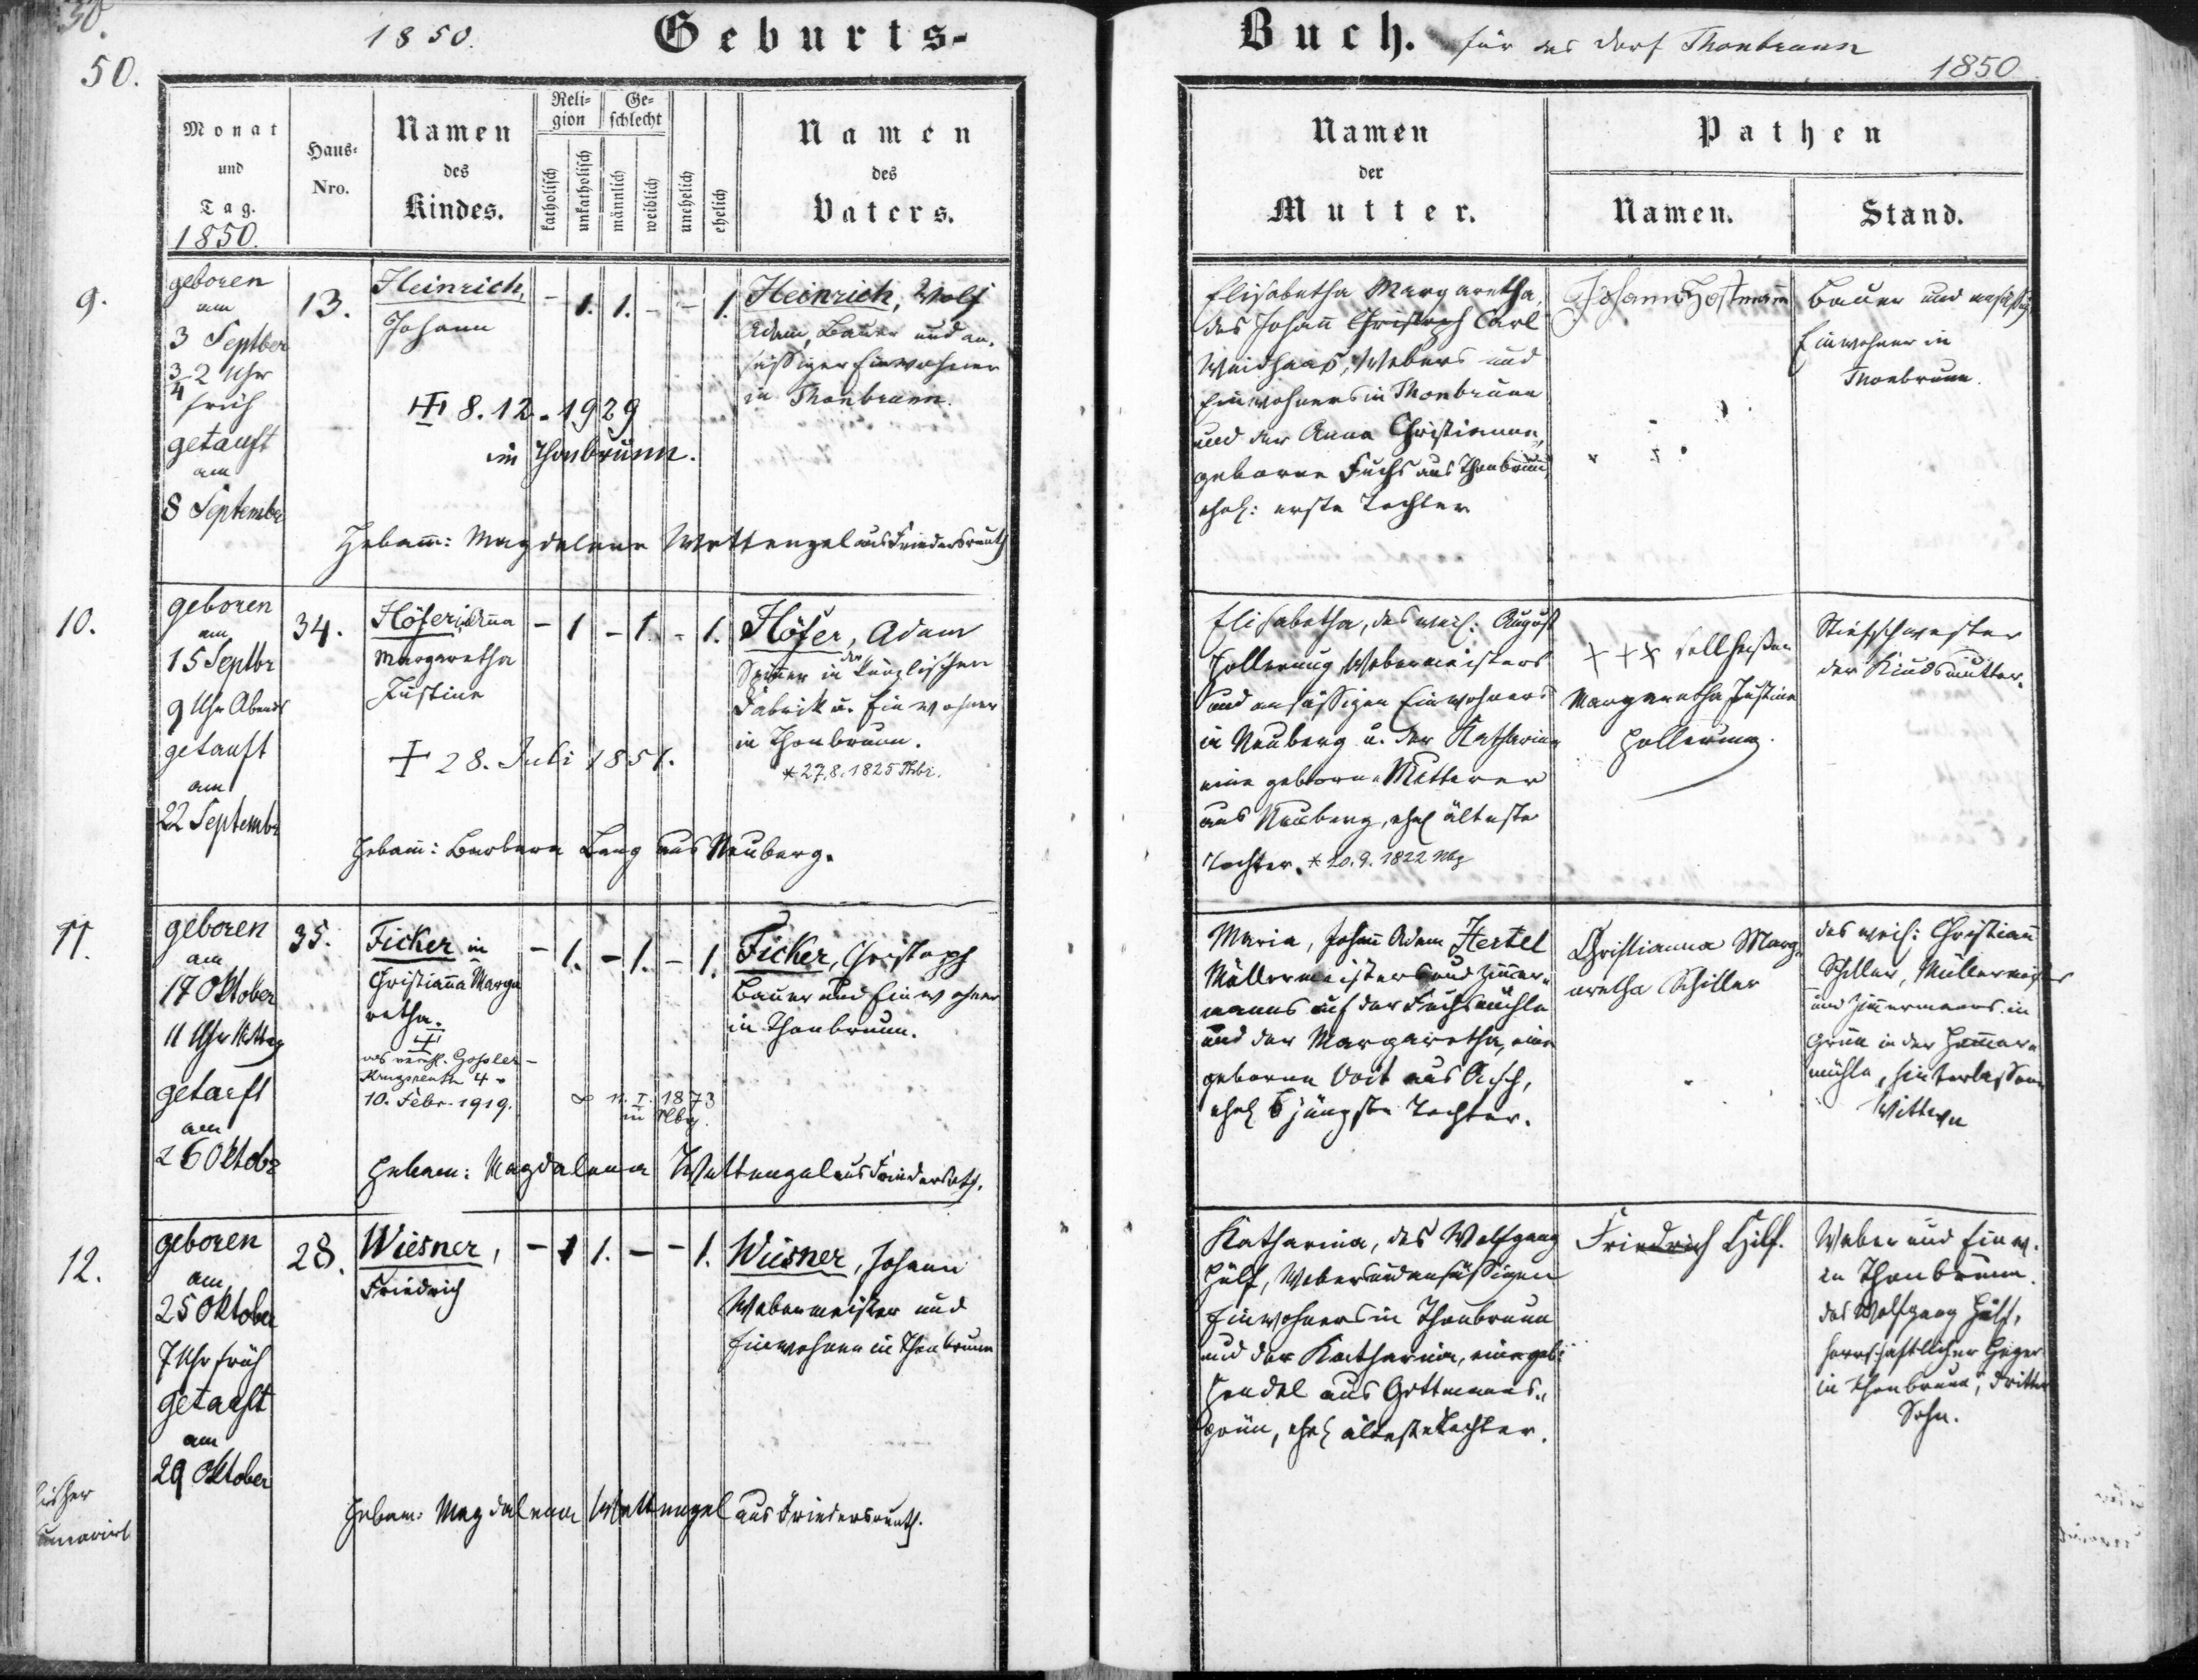 50.
1850.
Geburts-
50.
Monat
und
Tag.
1850.
Haus-
Nro.
Namen
des
Kindes.
Reli-
gion
katholisch
unkatholisch
Ge-
schlecht
männlich
weiblich
unehelich
ehelich
Namen
des
Vaters.
9.
geboren
am
3 Septber
3/4 2 Uhr
früh
getauft
am
8 September
13.
Heinrich,
Johann
- 1. 1. - - 1.
Heinrich, Wolf
Adam, Bauer und an-
säßiger Einwohner
in Thonbrunn.
8.12.1929
in Thonbrunn.
Hebam: Magdalena Wettengel aus Friedersreuth
10.
geboren
am
15 Septbr
9 Uhr Abends
getauft
am
22 Septembr
34.
Höferin, Anna
Margaretha
Justine
- 1 - 1. - 1.
Höfer, Adam
Spinner in der
Fabrik u. Einwohner
in Thonbrunn.
* 27.8.1825 Thbr.
+ 28. Juli 1851.
Hebam: Barbara Lang aus Neuberg.
11.
geboren
am
17 Oktober
11 Uhr Mittag
getauft
am
26 Oktobr
35.
Ficker in
Christiana Marga
retha.
Krugsreuth 4
10. Febr. 1919.
- 1. - 1. - 1.
Ficker, Christoph
Bauer und Einwohner
in Thonbrunn.
∞ 11. I. 1873
in Nbg.
Hebam: Magdalena Wettengel aus Friedersrth.
12.
geboren
am
25 Oktober
7 Uhr früh
getauft
am
29 Oktober
28.
Wiesner,
Friedrich
- 1 1. - - 1.
Wiesner, Johann
Webermeister und
Einwohner in Thonbrunn
Hebam: Magdalena Wettengel aus Friedersreuth.
Buch. für das Dorf Thonbrunn
1850
Namen
der
Mutter.
Pathen
Namen.
Stand.
Elisabetha Margaretha,
des Johann Christoph Carl
Weidhaas, Webers und
Einwohners in Thonbrunn
und der Anna Christiana,
geborne Fuchs aus Thonbrunn,
ehel: erste Tochter
Johann Hostmann
Bauer und ansäßig
Einwohner in
Thonbrunn.
Elisabetha, des weil: August
Hollerung Webermeisters
und ansäßigen Einwohners
in Neuberg u. der Katharina
eine geborne Metterer
aus Neuberg, ehel älteste
Tochter. * 20.9.1822 Nbg
+++ soll heißen
Margaretha Justina
Hollerung.
Stiefschwester
der Kindsmutter.
Maria, Johann Adam Hertel
Müllermeisters und Zimmer-
manns auf der Fuchsmühle
und der Margaretha, eine
geborne Voit aus Asch,
ehel jüngste Tochter.
Christianna Marg-
aretha Schiller
des weil: Christian
Schiller, Müllermeisters
und Zimmermanns in
Grün in der Hammer-
mühle, hinterlassene
Wittwe
Katharina, des Wolfgang
Hülf, Webers und ansäßigen
Einwohners in Thonbrunn
und der Katharina, eine geb:
Hendel aus Gottmanns-
grün, ehel älteste Tochter.
Friedrich Hilf.
Weber und Einw.
in Thonbrunn.
des Wolfgang Hülf,
herrschaftlicher Heger
in Thonbrunn, dritter
Sohn.